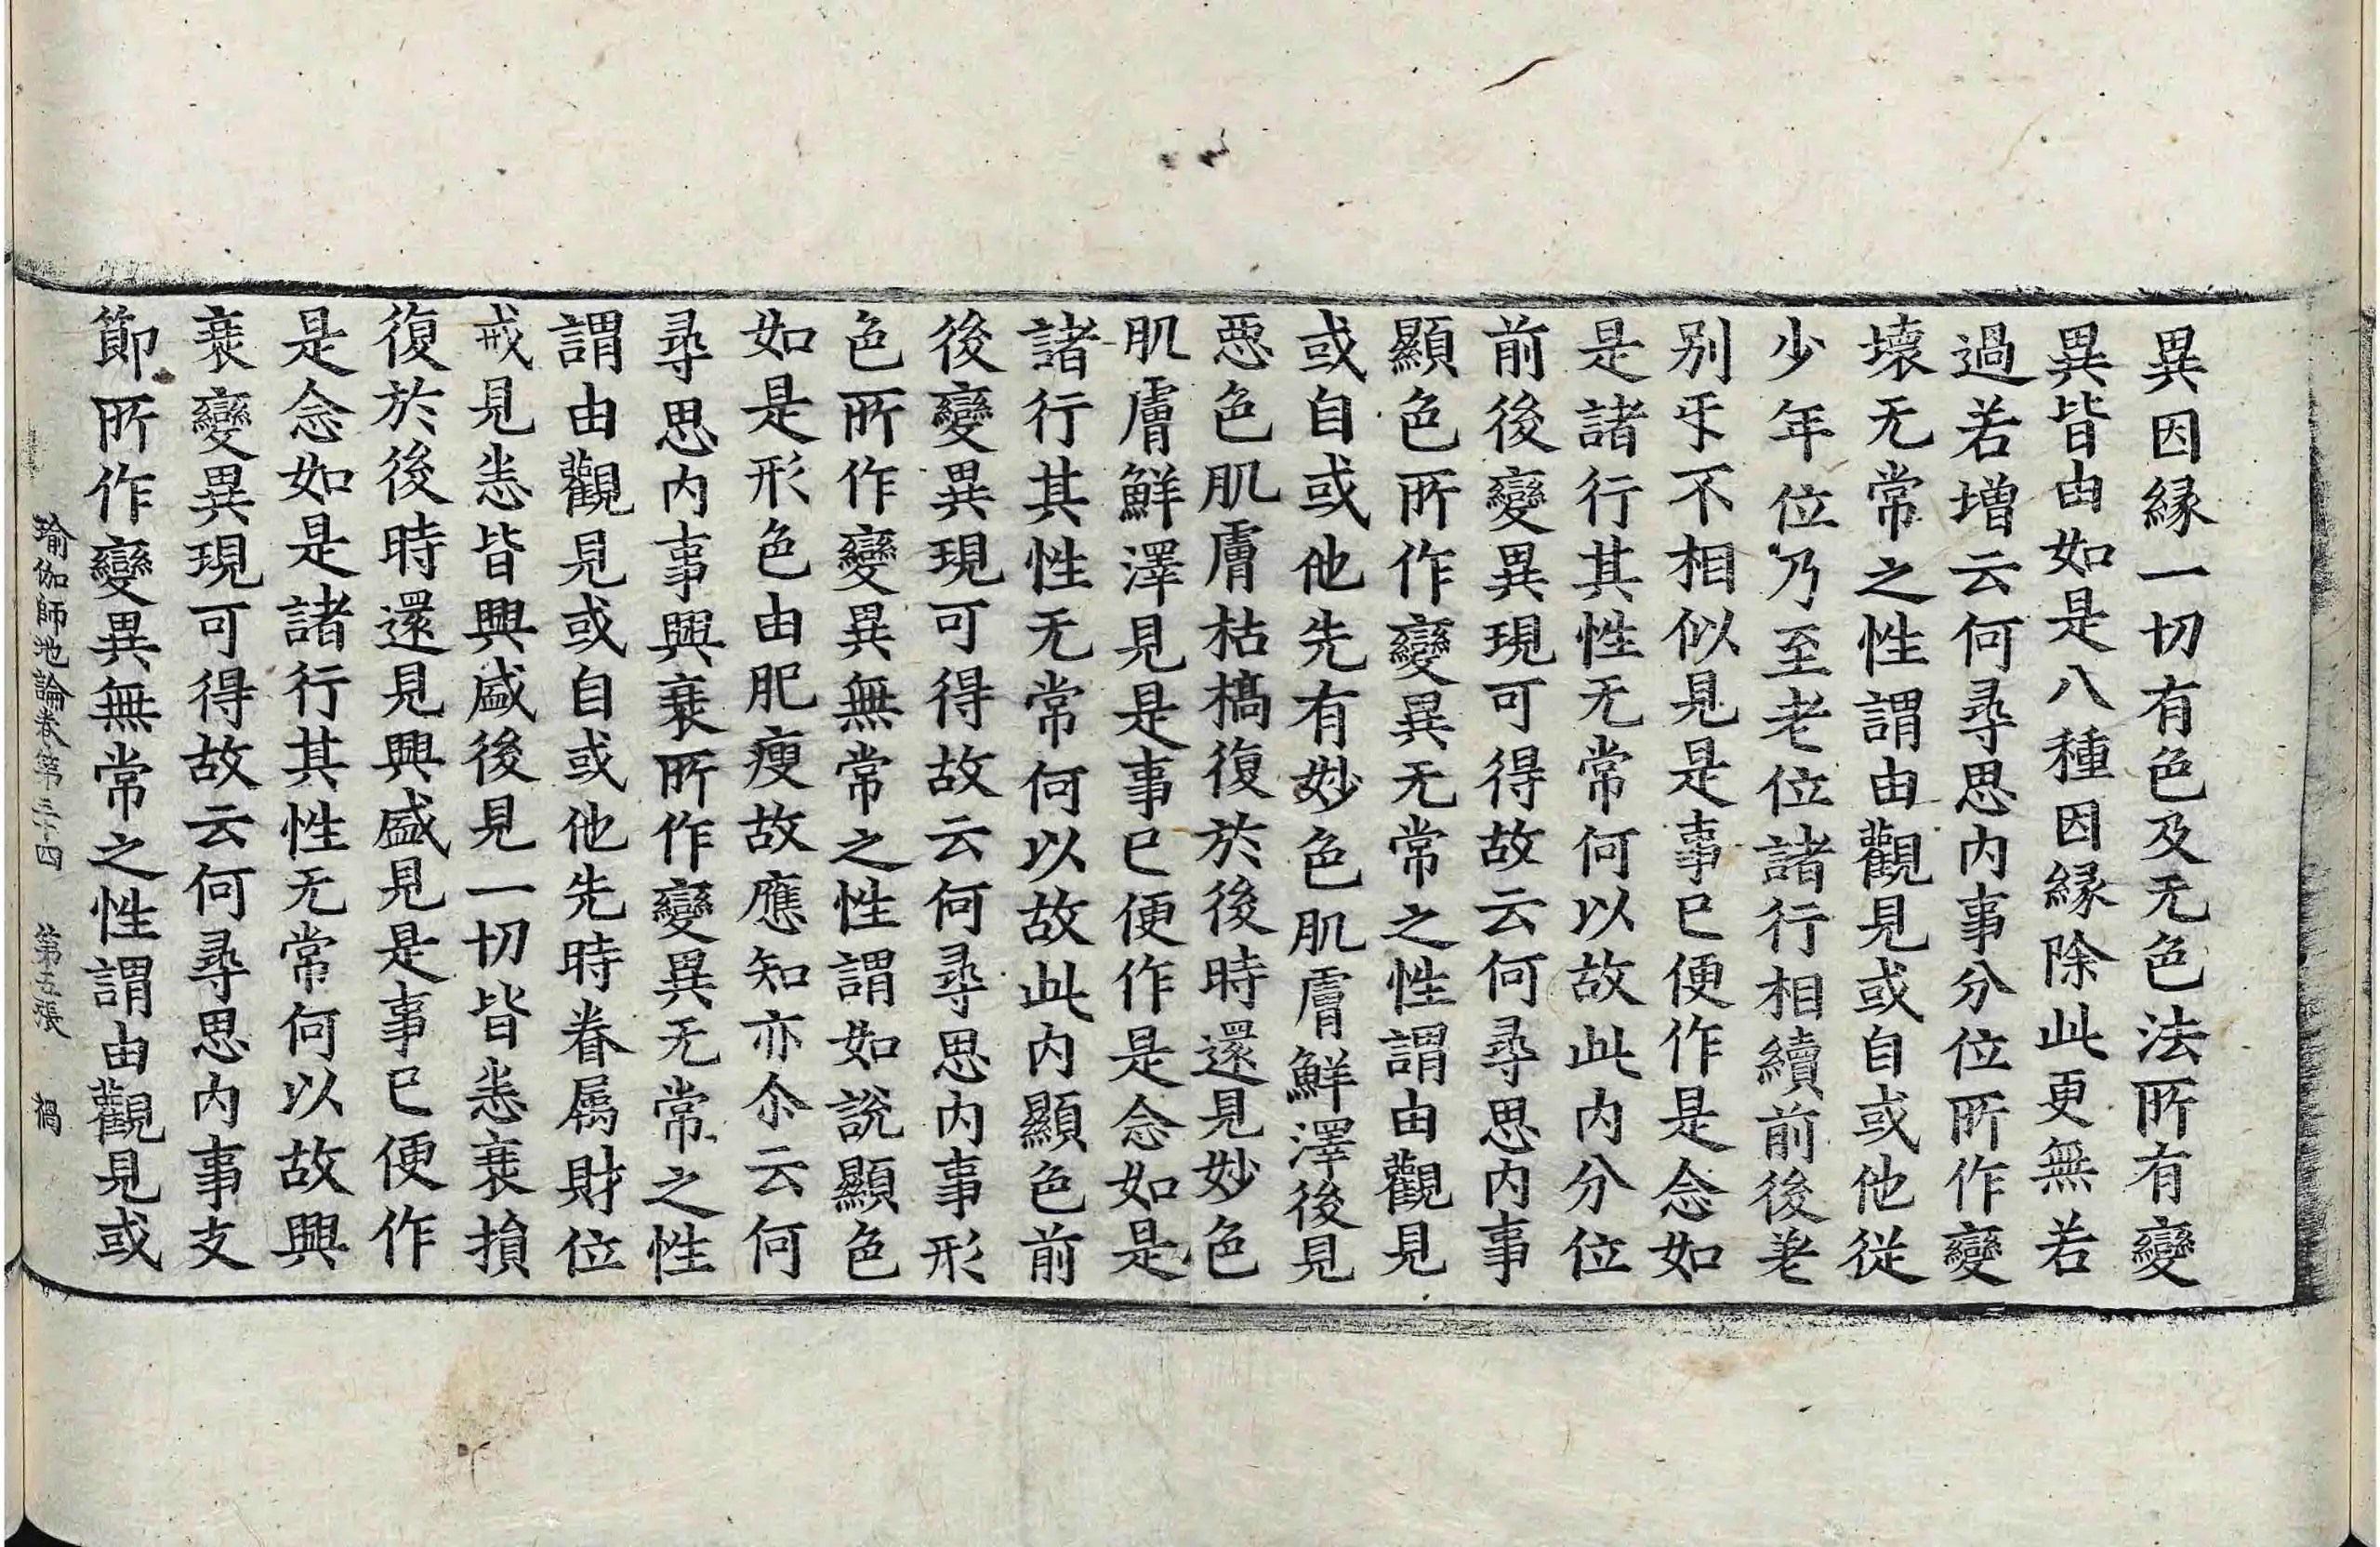 異因縁一切有色及无色法所有變
異皆由如是八種因縁除此更無若
過若增云何尋思内事分位所作變
壞无常之性謂由觀見或自或他從
少年位乃至老位諸行相續前後差
别㸦不相似見是事已便作是念如
是諸行其性无常何以故此内分位
前後變異現可得故云何尋思内事
顯色所作變異无常之性謂由觀見
或自或他先有妙色肌膚鮮澤後見
惡色肌膚枯槁復於後時還見妙色
肌膚鮮澤見是事已便作是念如是
諸行其性无常何以故此内顯色前
後變異現可得故云何尋思内事形
色所作變異無常之性謂如說顯色
如是形色由肥瘦故應知亦尒云何
尋思内事興衰所作變異无常之性
謂由觀見或自或他先時眷属財位
戒見悉皆興盛後見一切皆悉衰損
復於後時還見興盛見是事已便作
是念如是諸行其性无常何以故興
衰變異現可得故云何尋思内事支
節所作變異無常之性謂由觀見或
瑜伽師地論卷第三十四 第五張 禍